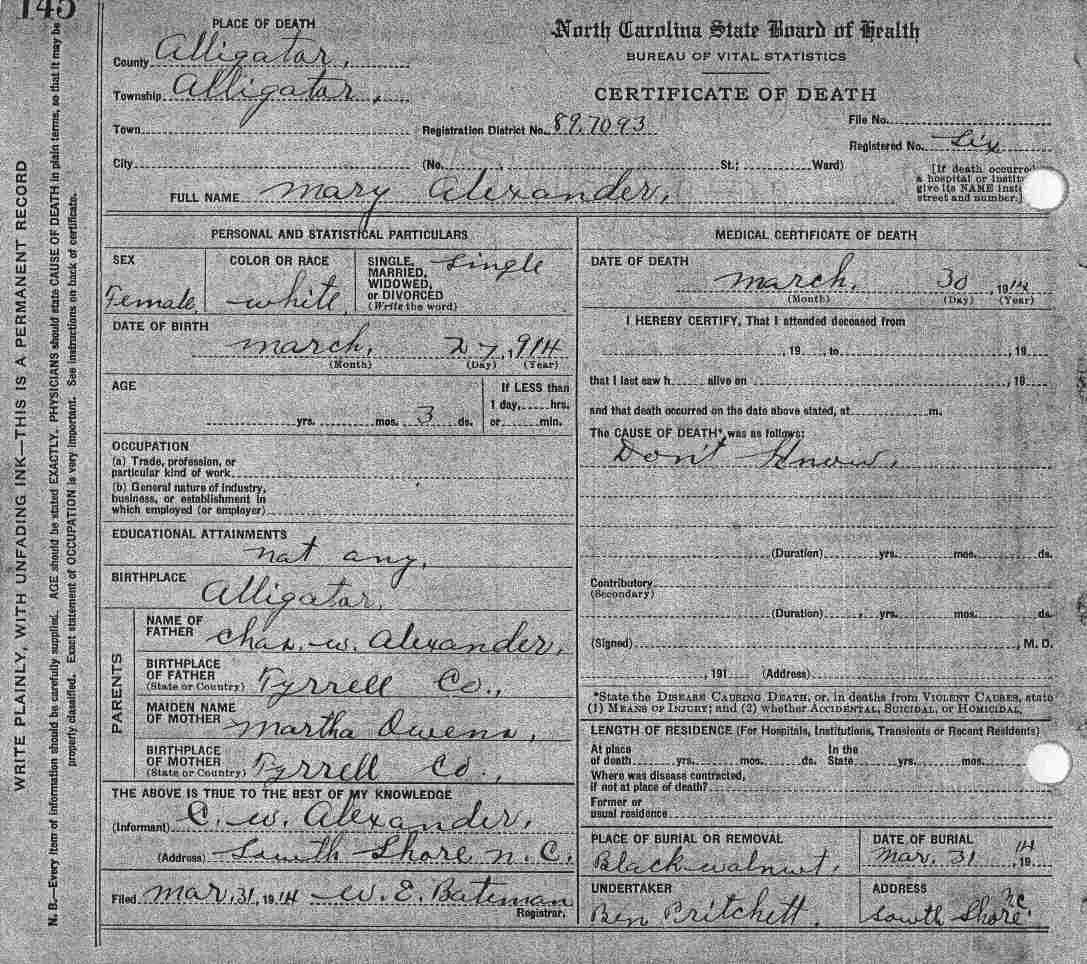 145
WRITE PLAINLY, WITH UNFADING INK—THIS IS A PERMANENT RECORD
N. B.—Every item of information should be carefully supplied. AGE should be stated EXACTLY. PHYSICIANS should state CAUSE OF DEATH in plain terms, so that it may be
properly classified. Exact statement of OCCUPATION is very important. See instructions on back of certificate.
PLACE OF DEATH
County Alligator.
Township Alligator.
Town
City
North Carolina State Board of Health
BUREAU OF VITAL STATISTICS
CERTIFICATE OF DEATH
Registration District No. 89.7093
File No.
Registered No. Six
(No. St.; Ward)
[If death occurred
a hospital or institu
give its NAME inste
street and number.]
FULL NAME Mary Alexander.
PERSONAL AND STATISTICAL PARTICULARS
SEX
Female,
COLOR OR RACE
White,
SINGLE,
MARRIED,
WIDOWED,
or DIVORCED
(Write the word)
Single
DATE OF BIRTH
March, 27, 914
(Month) (Day) (Year)
AGE
yrs. mos. 3 ds.
If LESS than
1 day, hrs.
or min.
OCCUPATION
(a) Trade, profession, or
particular kind of work
(b) General nature of industry,
business, or establishment in
which employed (or employer)
EDUCATIONAL ATTAINMENTS
nat any.
BIRTHPLACE
Alligator.
PARENTS
NAME OF
FATHER Chas. W. Alexander,
BIRTHPLACE
OF FATHER
(State or Country) Tyrrell Co.,
MAIDEN NAME
OF MOTHER Martha Owens,
BIRTHPLACE
OF MOTHER
(State or Country) Tyrrell Co.,
THE ABOVE IS TRUE TO THE BEST OF MY KNOWLEDGE
(Informant) C. W. Alexander,
(Address) South Shore N.C.
Filed Mar. 31, 1914 W. E. Bateman
Registrar.
MEDICAL CERTIFICATE OF DEATH
DATE OF DEATH
March, 30, 1914
(Month) (Day) (Year)
I HEREBY CERTIFY, That I attended deceased from
, 19 , to , 19
that I last saw h alive on , 19
and that death occurred on the date above stated, at m.
The CAUSE OF DEATH*, was as follows:
Don't Know.
(Duration) yrs. mos. ds.
Contributory
(Secondary)
(Duration) yrs. mos. ds.
(Signed) , M. D.
, 191 (Address)
*State the DISEASE CAUSING DEATH, or, in deaths from VIOLENT CAUSES, state
(1) MEANS OF INJURY; and (2) whether ACCIDENTAL, SUICIDAL, or HOMICIDAL.
LENGTH OF RESIDENCE (For Hospitals, Institutions, Transients or Recent Residents)
At place
of death yrs. mos. ds.
In the
State yrs. mos.
Where was disease contracted,
if not at place of death?
Former or
usual residence
PLACE OF BURIAL OR REMOVAL
Black walnut,
DATE OF BURIAL
Mar. 31 1914
UNDERTAKER
Ben Pritchett.
ADDRESS
South Shore N.C.